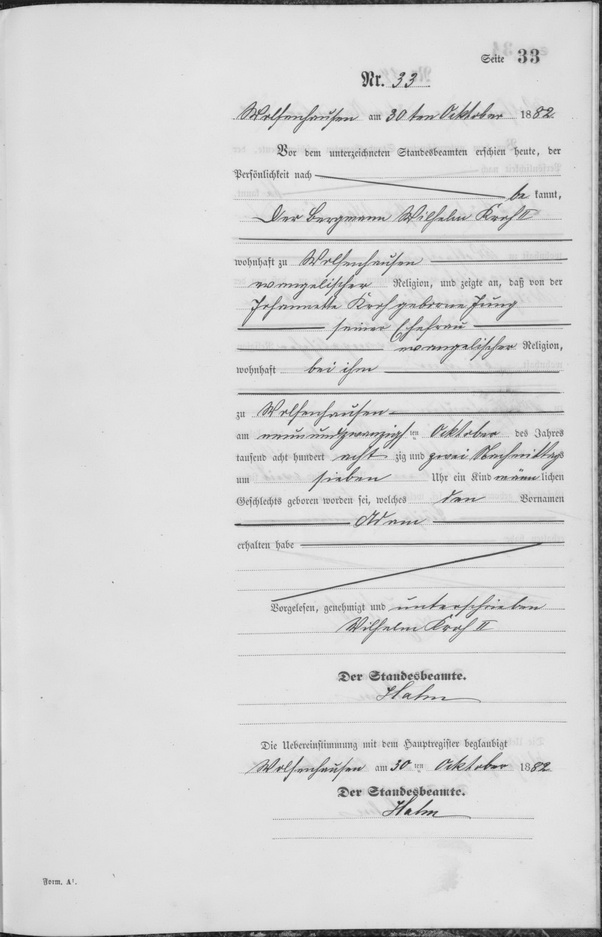 Seite 33
Nr. 33
Wolfenhausen am 30ten Oktober 1882
Vor dem unterzeichneten Standesbeamten erschien heute, der
Persönlichkeit nach
be kannt,
Der Bergmann Wilhelm Kroh II
wohnhaft zu Wolfenhausen
evangelischer Religion, und zeigte an, daß von der
Johannette Kroh geborene Jung
seiner Ehefrau
evangelischer Religion,
wohnhaft bei ihm
zu Wolfenhausen
am neunundzwanzigsten Oktober des Jahres
tausend acht hundert acht zig und zwei Nachmittags
um sieben Uhr ein Kind männlichen
Geschlechts geboren worden sei, welches den Vornamen
Adam
erhalten habe
Vorgelesen, genehmigt und unterschrieben
Wilhelm Kroh II
Der Standesbeamte.
Hahn
Die Uebereinstimmung mit dem Hauptregister beglaubigt
Wolfenhausen am 30ten Oktober 1882
Der Standesbeamte.
Hahn
Form. A¹.